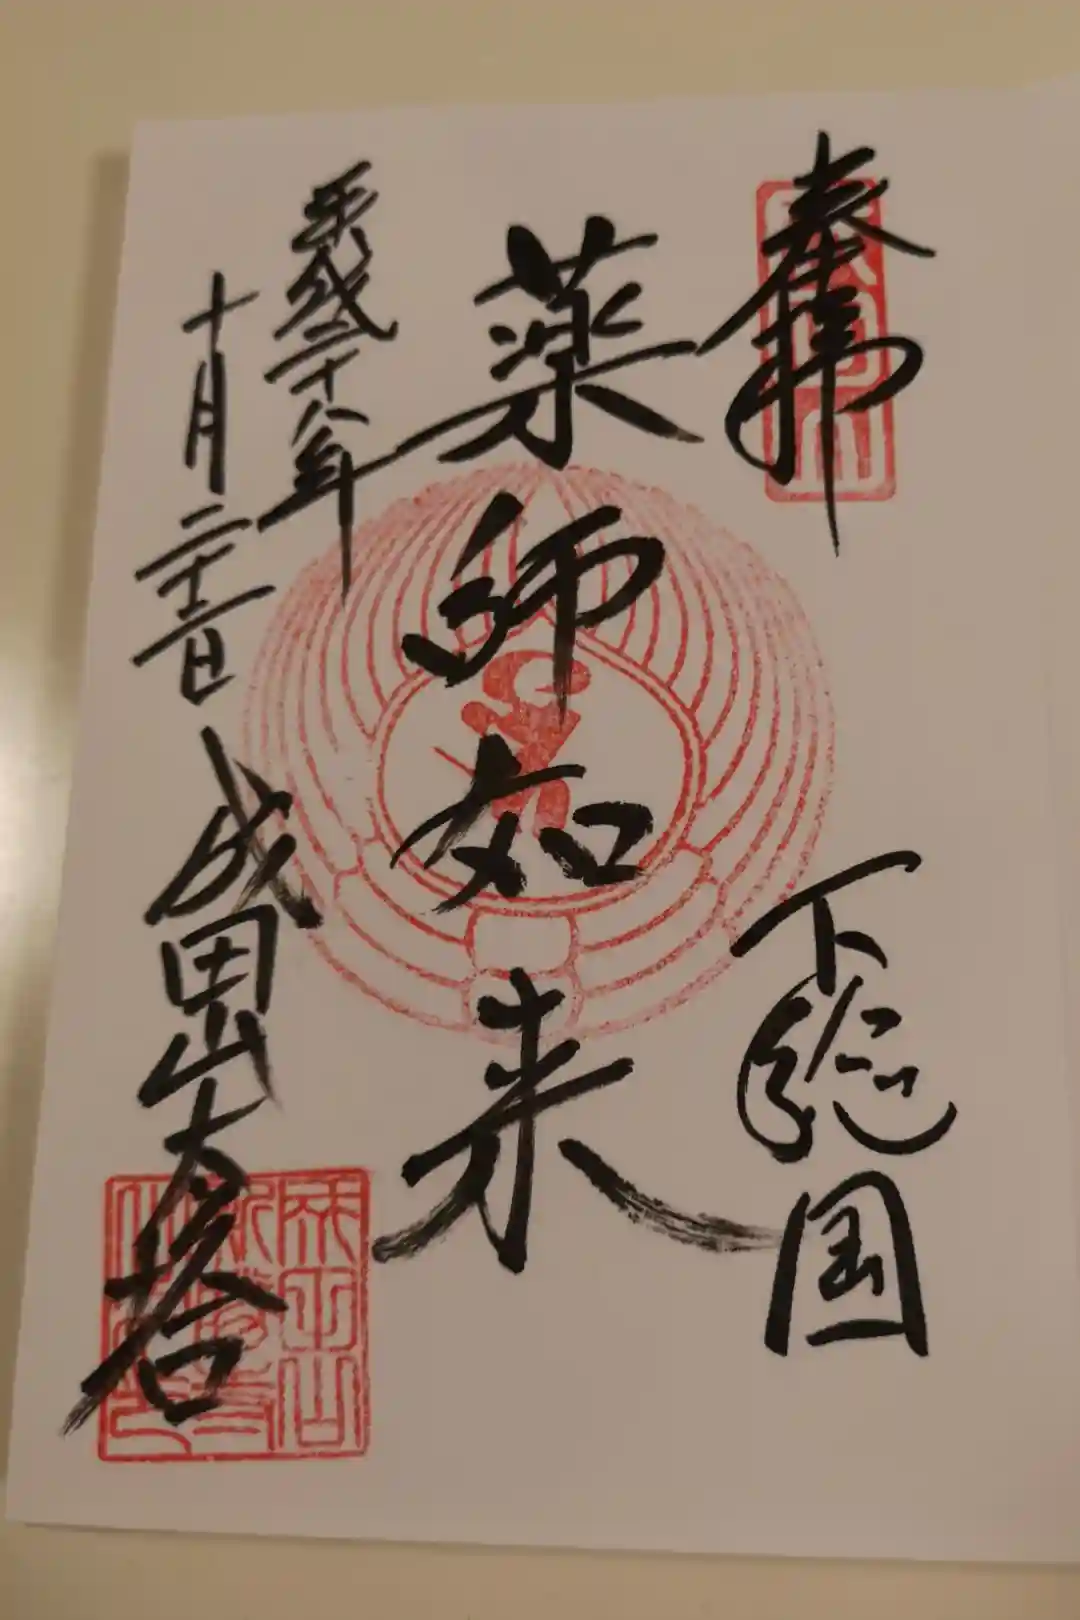 奉拝
下総国
薬師如来
平成二十八年
十月二十二日
成田山大塔
成田山